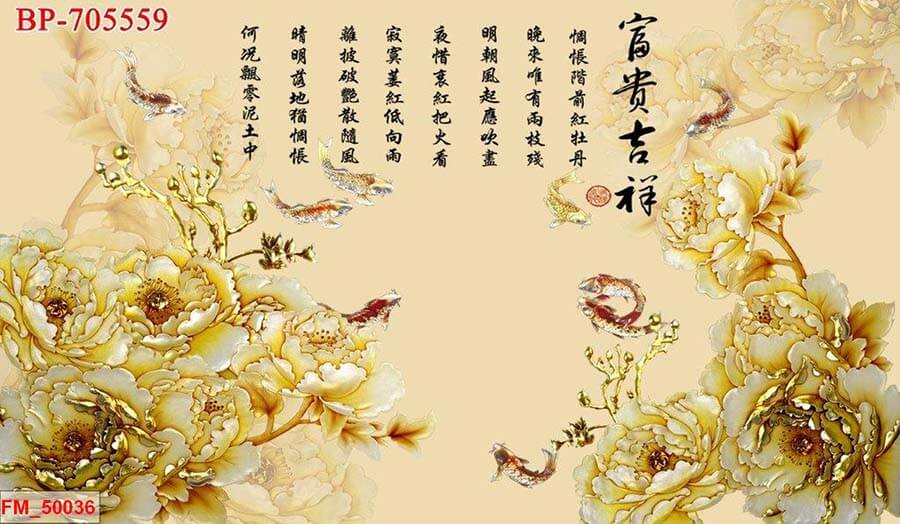 BP-705559
富貴吉祥
惆悵階前紅牡丹
晚來唯有兩枝殘
明朝風起應吹盡
夜惜衰紅把火看
寂寞萎紅低向雨
離披破艷散隨風
晴明落地猶惆悵
何況飄零泥土中
FM_50036